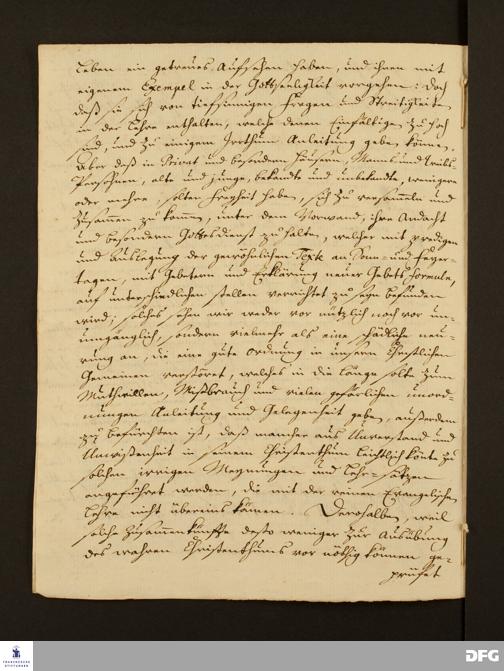 Leben ein getreues Aufsehen haben, und ihnen mit
eigenem Exempel in der Gottseeligkeit vorgehen: Doch
daß sie sich von tiefsinnigen Fragen und Streitigkeiten
in der Lehre enthalten, welche denen Einfältigen zu hoch
sind, und zu einigem Irrthum Anleitung geben können.
Aber daß in Privat und besondern Häusern, Manns und Weibs-
Persohnen, alte und junge, bekandte und unbekandte, wenigere
oder mehre, solten Freyheit haben, sich zu versammeln und
zusamen zu kommen, unter dem Vorwand, ihre Andacht
und besondern Gottesdienst zu halten, welcher mit predigen
und Auslegung der gewöhnlichen Texte an Sonn- und Feyer-
tagen, mit Gebetern und Erklärung neuer Gebets formule,
auf unterschiedlichen stellen verrichtet zu seyn befunden
wird; solches sehen wir weder vor nützlich noch vor un-
umgänglich, sondern vielmehr als eine schädliche neu-
rung an, die eine gute Ordnung in unsern Christlichen
Gemeinen verstöret, welches in die länge solte zum
Muthwillen, Mißbrauch und vielen gefärlichen unord-
nungen Anleitung und Gelegenheit geben, außerdem
zu befürchten ist, daß mancher aus Unverstand und
Unwißenheit in seinem Christenthum leichtlich könte zu
solchen irrigen Meynungen und Lehr-sätzen
angeführet werden, die mit der reinen Evangelischen
Lehre nicht übereinkämen. Derohalben, weil
solche Zusammenkünffte desto weniger zur Ausübung
des wahren Christenthums vor nöthig können ge-
prüfet
FRANCKESCHE
STIFTUNGEN
DFG